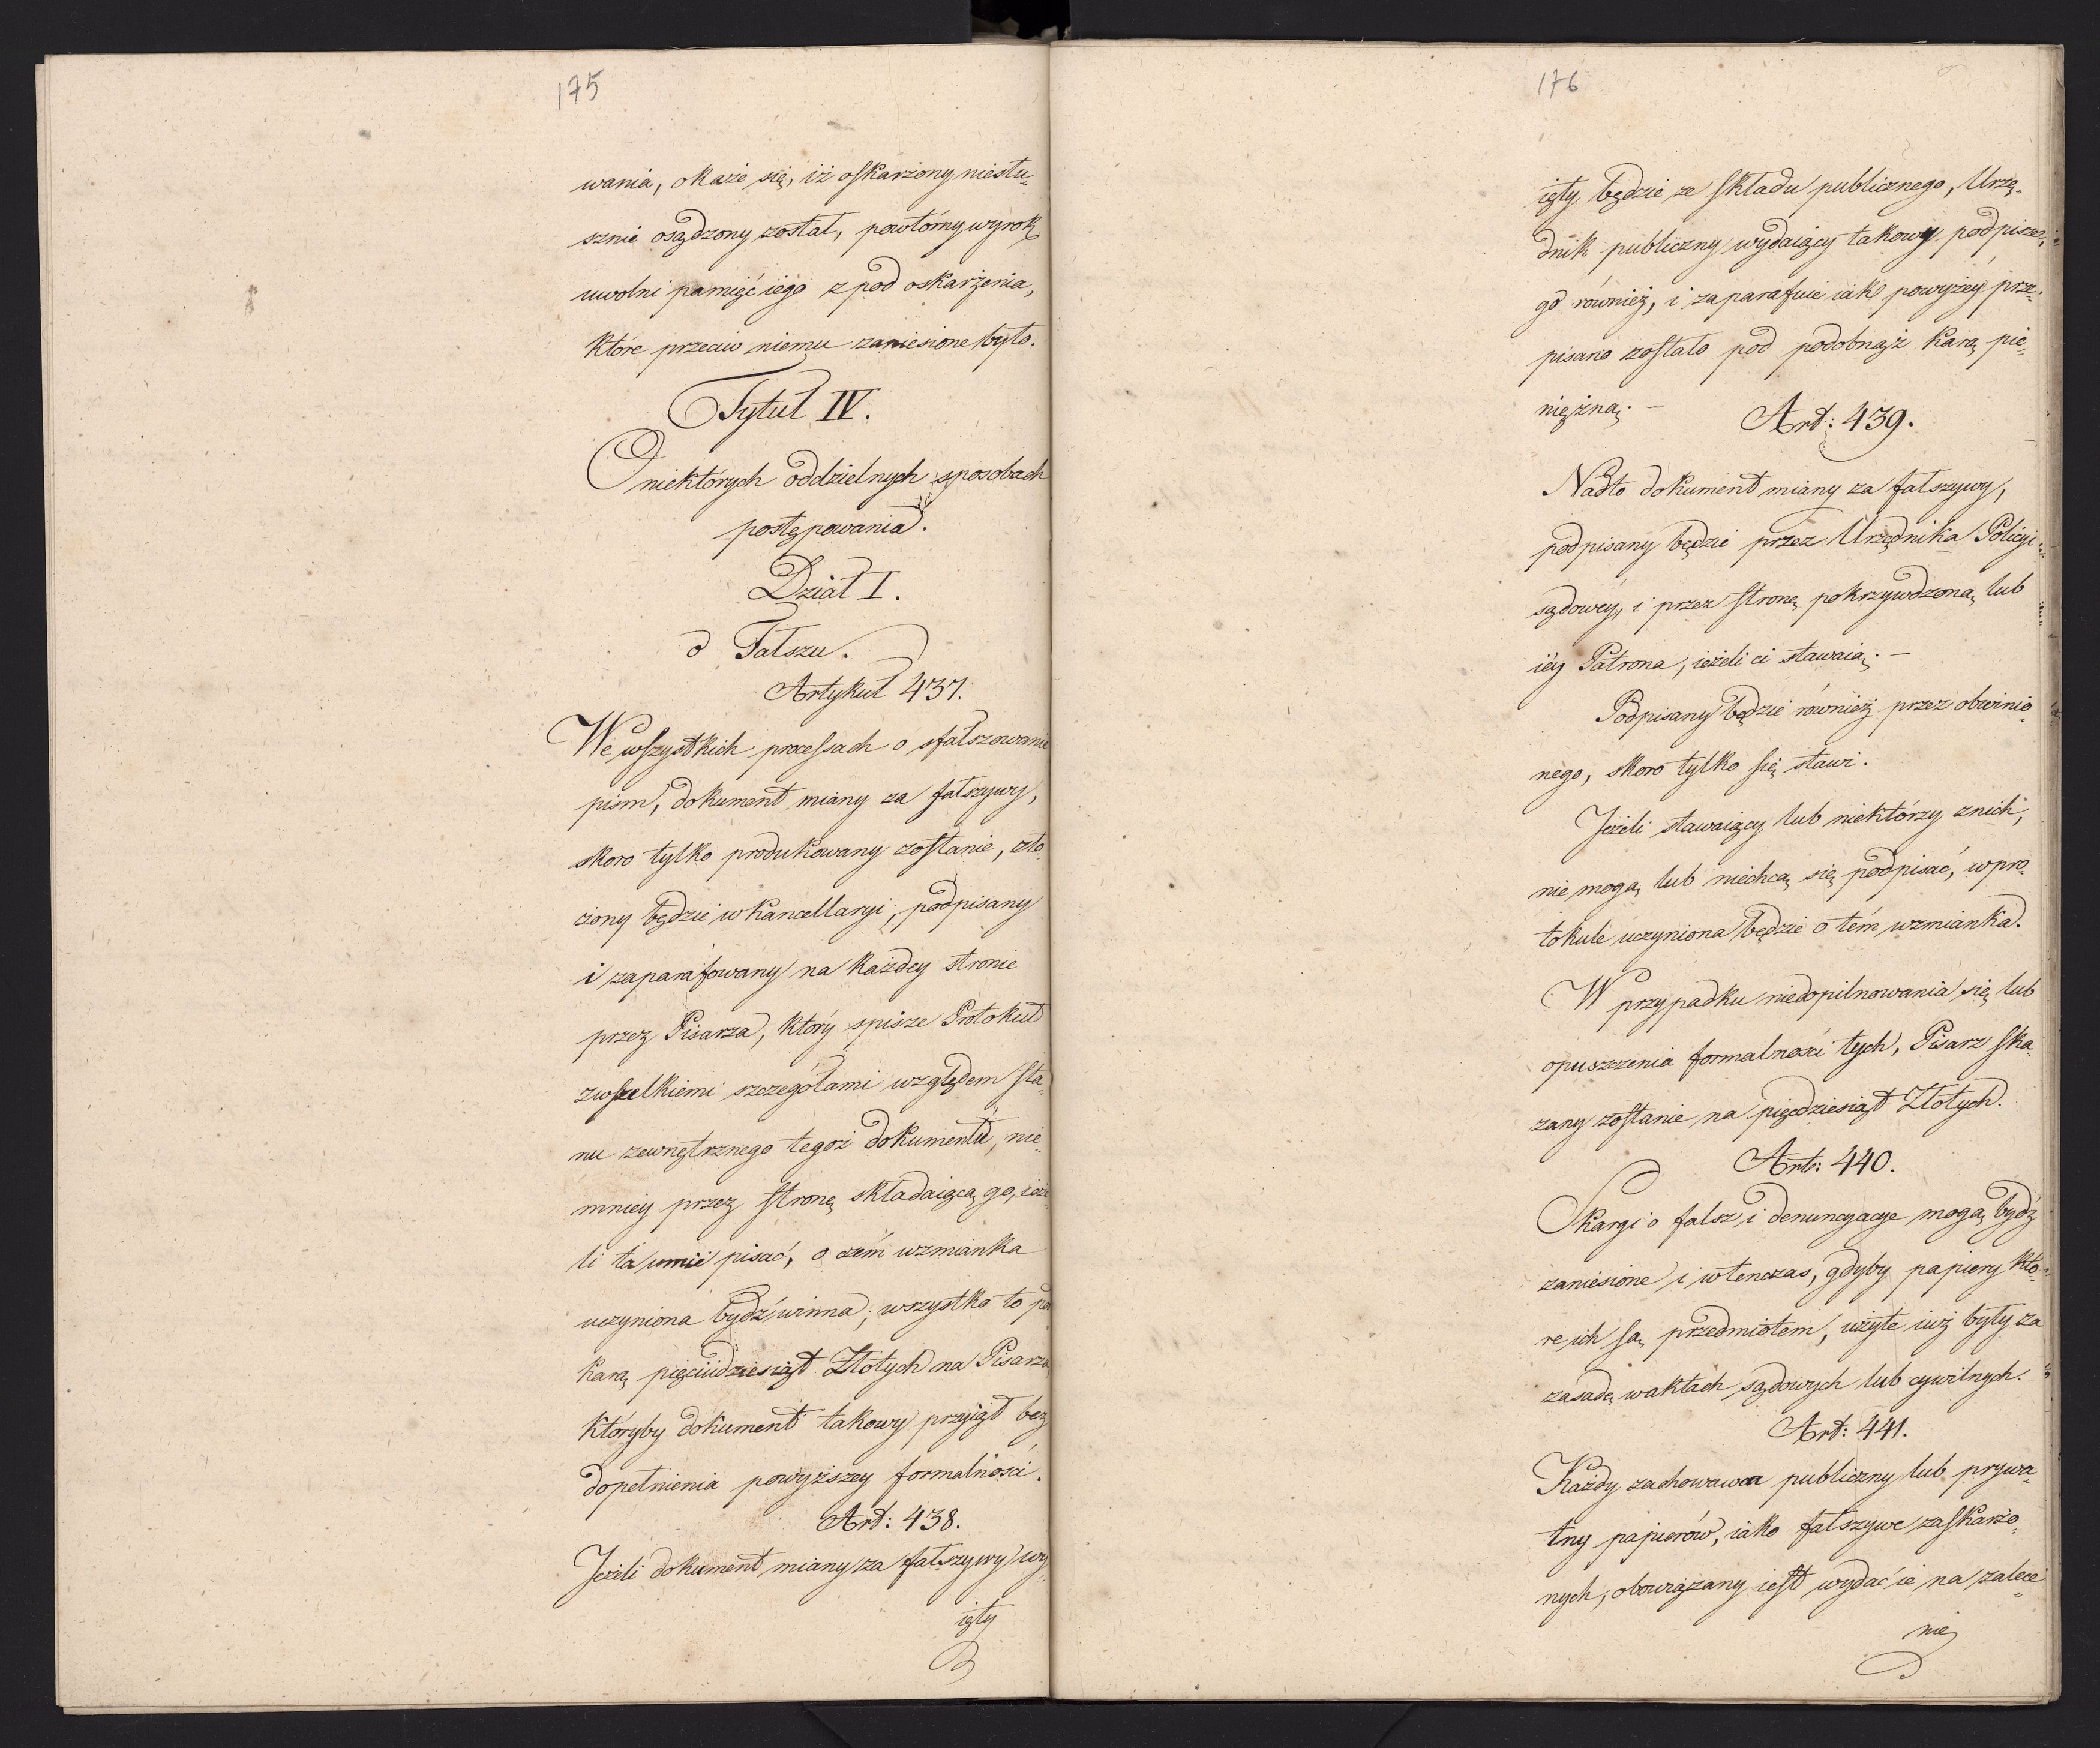 175
wania, okaże się, iż oskarżony niesłu„
sznie osądzony został, powtórny wyrok
uwolni pamięć iego z pod oskarżenia,
które przeciw niemu zaniesione było.
Tytuł IV.
O niektórych oddzielnych sposobach
postępowania.
Dział I.
o Fałszu.
Artykuł 437.
We wszystkich processach o sfałszowanie
pism, dokument miany za fałszywy,
skoro tylko produkowany zostanie, zło„
żony będzie w kancellaryi, podpisany
i zaparafowany na każdey stronie
przez Pisarza, który spisze Protokuł
z wszelkiemi szczegółami względem sta„
nu zewnętrznego tegoż dokumentu, nie„
mniey przez stronę składaiącą go, ieże
li ta umie pisać, o czém wzmianka
uczyniona bydź winna; wszystko to po
karą pięciudziesiąt Złotych na Pisarza
któryby dokument takowy przyiął bez
dopełnienia powyższey formalności.
Art: 438.
Jeżeli dokument miany za fałszywy wy„
ięty
176
ięty będzie ze składu publicznego, Urzę„
dnik publiczny wydaiący takowy podpisze
go również, i zaparafuie iak powyżey prze„
pisano zostało pod podobnąż karą pie„
niężną. —
Art: 439.
Nadto dokument miany za fałszywy,
podpisany będzie przez Urzędnika Policyi
sądowéy, i przez stronę pokrzywdzoną lub
iéy Patrona, ieżeli ci stawaią. —
Podpisany będzie również przez obwinio„
nego, skoro tylko się stawi.
Jeżeli stawaiący lub niektórzy z nich,
nie mogą lub niechcą się podpisać, w pro„
tokule uczyniona będzie o tém wzmianka.
W przypadku niedopilnowania się lub
opuszczenia formalności tych, Pisarz ska„
zany zostanie na pięćdziesiąt Złotych.
Art: 440.
Skargi o fałsz i denuncyacye mogą bydź
zaniesione i wtenczas, gdyby papiery któ„
re ich są przedmiotem, użyte iuż były za
zasadę w aktach sądowych lub cywilnych.
Art: 441.
Każdy zachowawca publiczny lub prywa„
tny papierów, iako fałszywe zaskarżo„
nych, obowiązany iest wydać ie na zalece„
nie